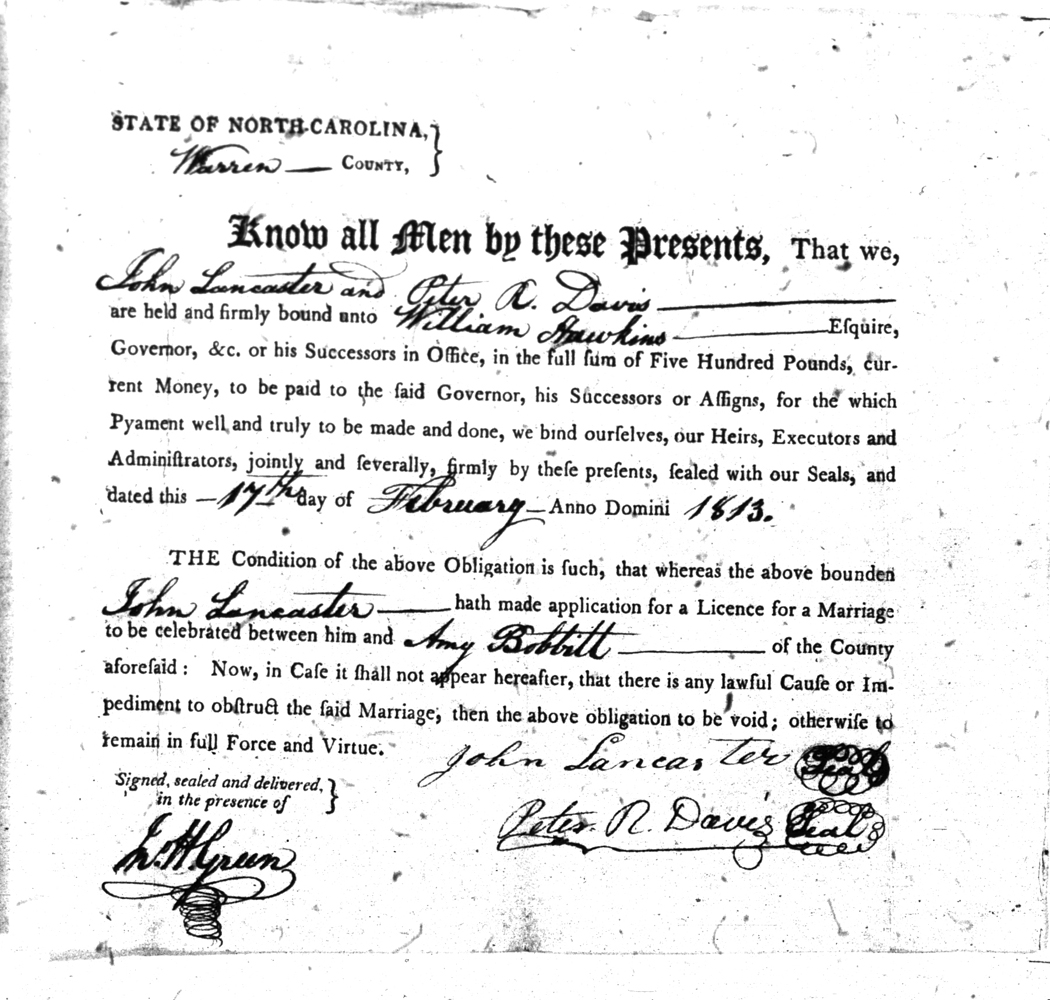 STATE OF NORTH-CAROLINA,
Warren — COUNTY,
Know all Men by these Presents, That we,
John Lancaster and Peter R. Davis
are held and firmly bound unto William Hawkins Eſquire,
Governor, &c. or his Successors in Office, in the full ſum of Five Hundred Pounds, cur-
rent Money, to be paid to the ſaid Governor, his Successors or Aſſigns, for the which
Pyament well and truly to be made and done, we bind ourſelves, our Heirs, Executors and
Adminiſtrators, jointly and ſeverally, firmly by theſe preſents, ſealed with our Seals, and
dated this — 17th day of February — Anno Domini 1813.
THE Condition of the above Obligation is ſuch, that whereas the above bounden
John Lancaster — hath made application for a Licence for a Marriage
to be celebrated between him and Amy Bobbitt — of the County
aforeſaid: Now, in Caſe it ſhall not appear hereafter, that there is any lawful Cauſe or Im-
pediment to obſtruct the ſaid Marriage, then the above obligation to be void; otherwiſe to
remain in full Force and Virtue.
John Lancaster Seal
Signed, sealed and delivered,
in the presence of
Peter. R. Davis Seal
Jno. H. Green